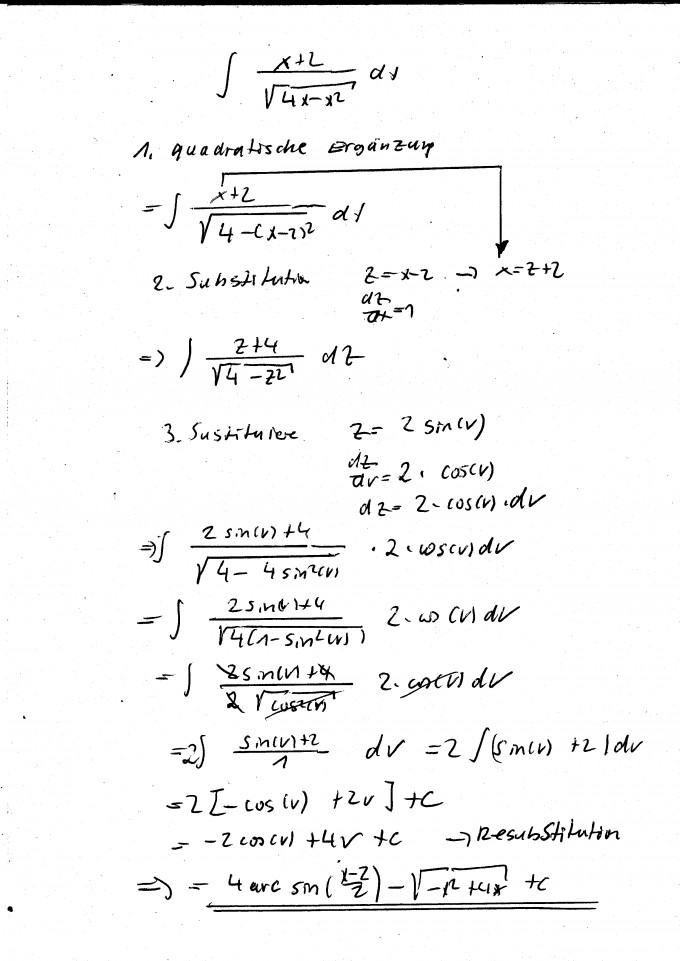 ∫ (x+2)/√(4x-x²) dx
1. quadratische Ergänzung
= ∫ (x+2)/√(4-(x-2)²) dx
2. Substitution z=x-2 → x=z+2
dz/dx=1
=> ∫ (z+4)/√(4-z²) dz
3. Sustituiere z= 2 sin(v)
dz/dv= 2 · cos(v)
dz= 2·cos(v)·dv
=> ∫ (2 sin(v)+4)/√(4-4sin²(v)) · 2·cos(v)dv
= ∫ (2sin(v)+4)/√(4(1-sin²(v))) 2·cos(v)dv
= ∫ (2sin(v)+4)/(2√cos²(v)) 2·cos(v)dv
=2∫ (sin(v)+2)/1 dv =2∫(sin(v)+2)dv
=2[-cos(v) +2v]+c
= -2cos(v)+4v+c → Resubstitution
=> = 4 arc sin((x-2)/2) - √(-x²+4x) +c